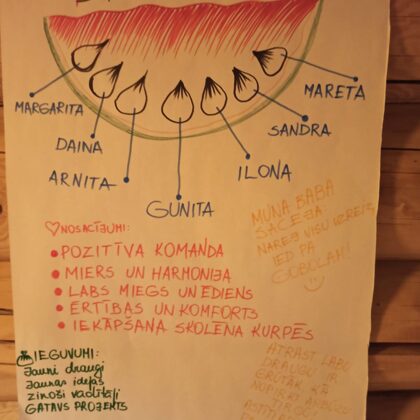 MARGARITA
DAINA
ARNITA
GUNITA
ILONA
SANDRA
MARETA
♡NOSACĪJUMI:
• POZITĪVA KOMANDA
• MIERS UN HARMONIJA
• LABS MIEGS UN ĒDIENS
• ĒRTĪBAS UN KOMFORTS
• IEKĀPŠANA SKOLĒNA KURPĒS
MUNA BABA
SACEJA:
NAREJ VISU IZREIZ,
IED PA
GOBOLAM!
IEGUVUMI:
Jauni draugi
Jaunas idejas
zinoši vadītāji
GATAVS PROJEKTS
ATRAST LABU
DRAUGU IR
GRŪTĀK KĀ